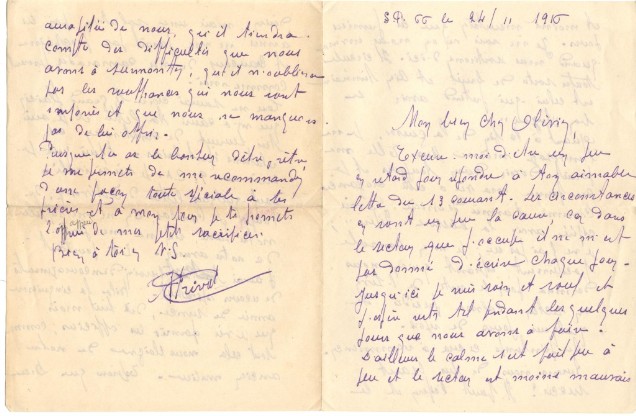 de nous, qu'il tiendra
compte des difficultés que nous
avons à surmonter, qu'il n'oubliera
pas les souffrances qui nous sont
imposées et que nous ne manquons
pas de lui offrir.
Puisque tu as le bonheur d'être prêtre
je me permets de me recommander
d'une façon toute spéciale à tes
prières et à mon tour je te promets
l'offrande de mes petits sacrifices.
Bien à toi en N.S
Privat
S.P. 66 le 24/11 1916
Mon bien cher Olivier,
Excuse-moi d'être un peu
en retard pour répondre à ton aimable
lettre du 13 courant. Les circonstances
en sont un peu la cause car dans
le secteur que j'occupe il ne m'est
pas donné d'écrire chaque jour.
Jusqu'ici je suis sain et sauf et
j'espère être tel pendant les quelques
jours que nous avons à faire.
D'ailleurs le calme s'est fait peu à
peu et le secteur est moins mauvais